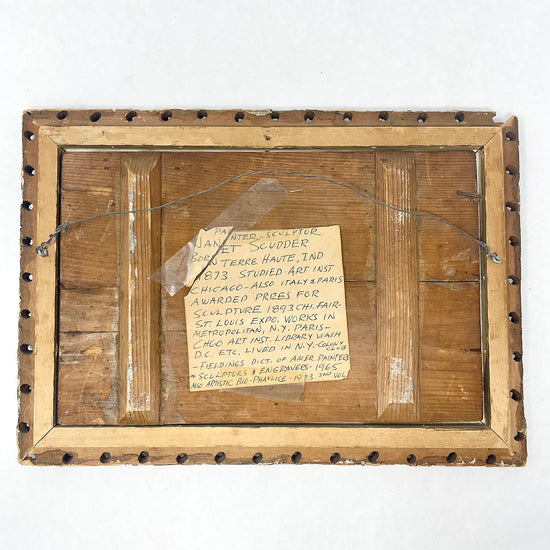 PAINTED - SCULPTOR
JANET SCUDDER
BORN TERRE HAUTE, IND
1873 STUDIED ART INST
CHICAGO - ALSO ITALY & PARIS
AWARDED PRIZES FOR
SCULPTURE 1893 CHI. FAIR-
ST. LOUIS EXPO. WORKS IN
METROPOLITAN, N.Y. PARIS-
CHGO ART INST. LIBRARY WASH
D.C. ETC. LIVED IN N.Y. - COLONY CLUB
- FIELDINGS DICT. OF AMER PAINTER
+ SCULPTORS & ENGRAVERS - 1965
ALSO ARTISTIC BIO - - 1973 2ND VOL